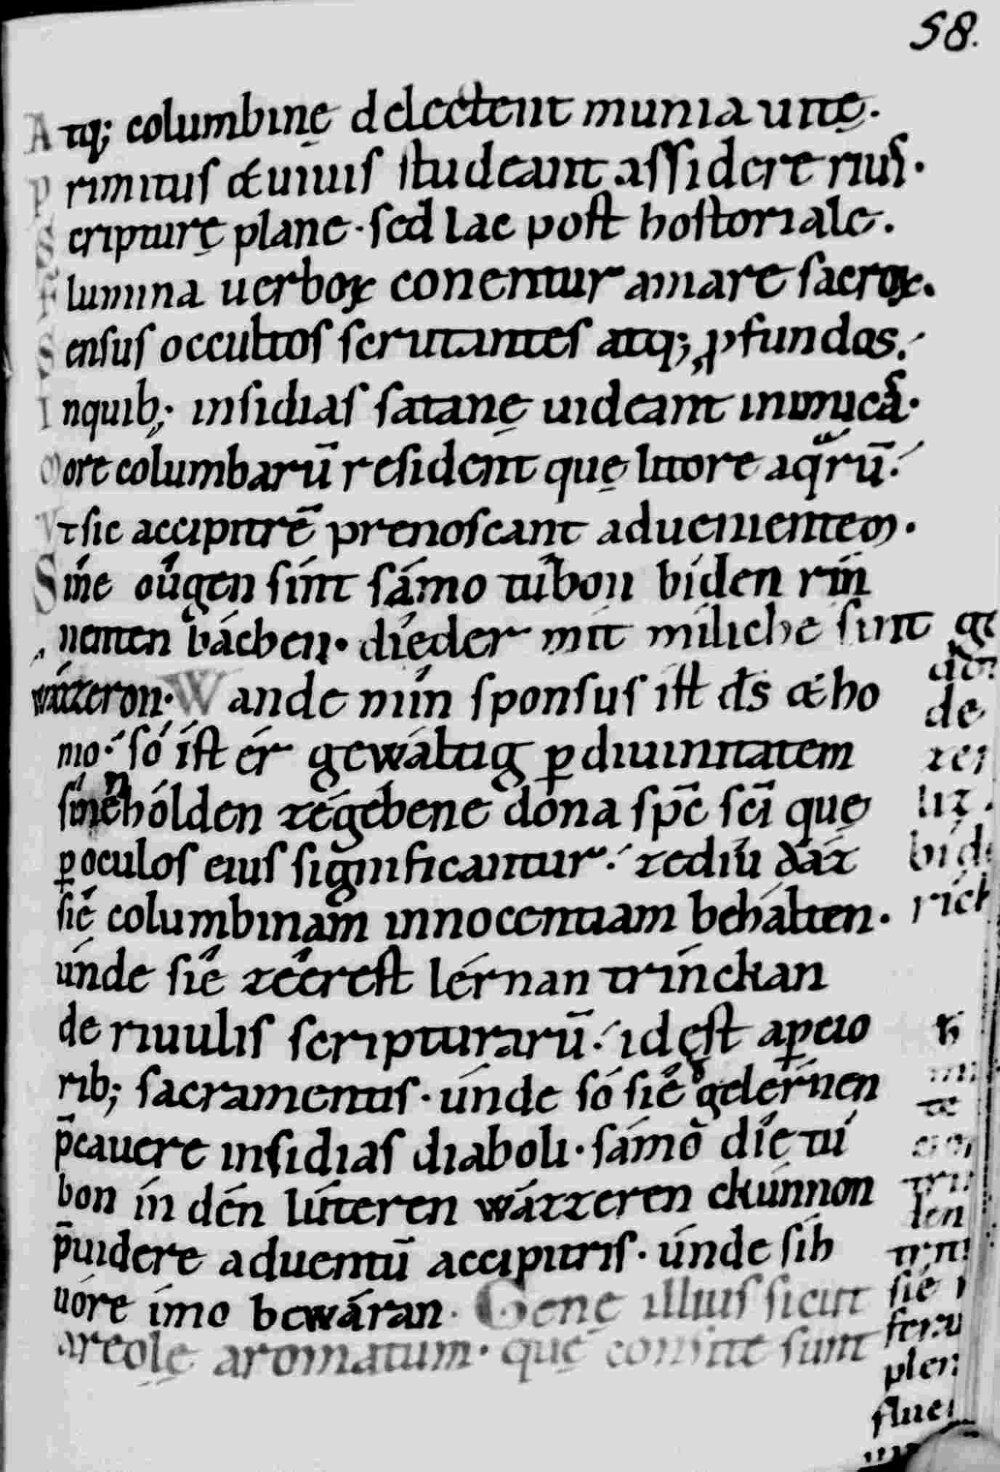 58.
Atq; columbinę delectent munia uitę.
Primitus & uiuis studeant assidere riuis.
Scripturę planę. sed lac post hostoriale.
Flumina uerboꝝ conentur amare sacroꝝ.
Sensus occultos scrutantes atq; ꝓfundos.
Inquib; insidias satanę uideant inimicā.
More columbarū resident quę litore aq̄rū.
Vt sic accipitrē prenoscant aduenientem.
Sine óugen sint sámo túbon bíden rín
neiten bácchen. díeder mit míliche sint ge
wázzeron. Wande mín sponsus ist d̄s & ho
mo. só ist ér gewáltig ꝑ diuinitatem
sínen hólden zegébene dona sp̄c sc̄i que
ꝑ oculos eius significantur. zediú dáz
síe columbinam innocentiam behálten.
únde síe zéerest lérnan trínckan
de riuulis scripturarū. id est aꝑtio
rib; sacramentis. únde só síe gelérnen
p̄cauere insidias diaboli. sámo díe tú
bon ín dén lúteren wázzeren ckúnnon
p̄uidere aduentū accipitris. únde sih
uóre ímo bewáran. Genę illius sicut
areolę aromatum. quę consitę sunt